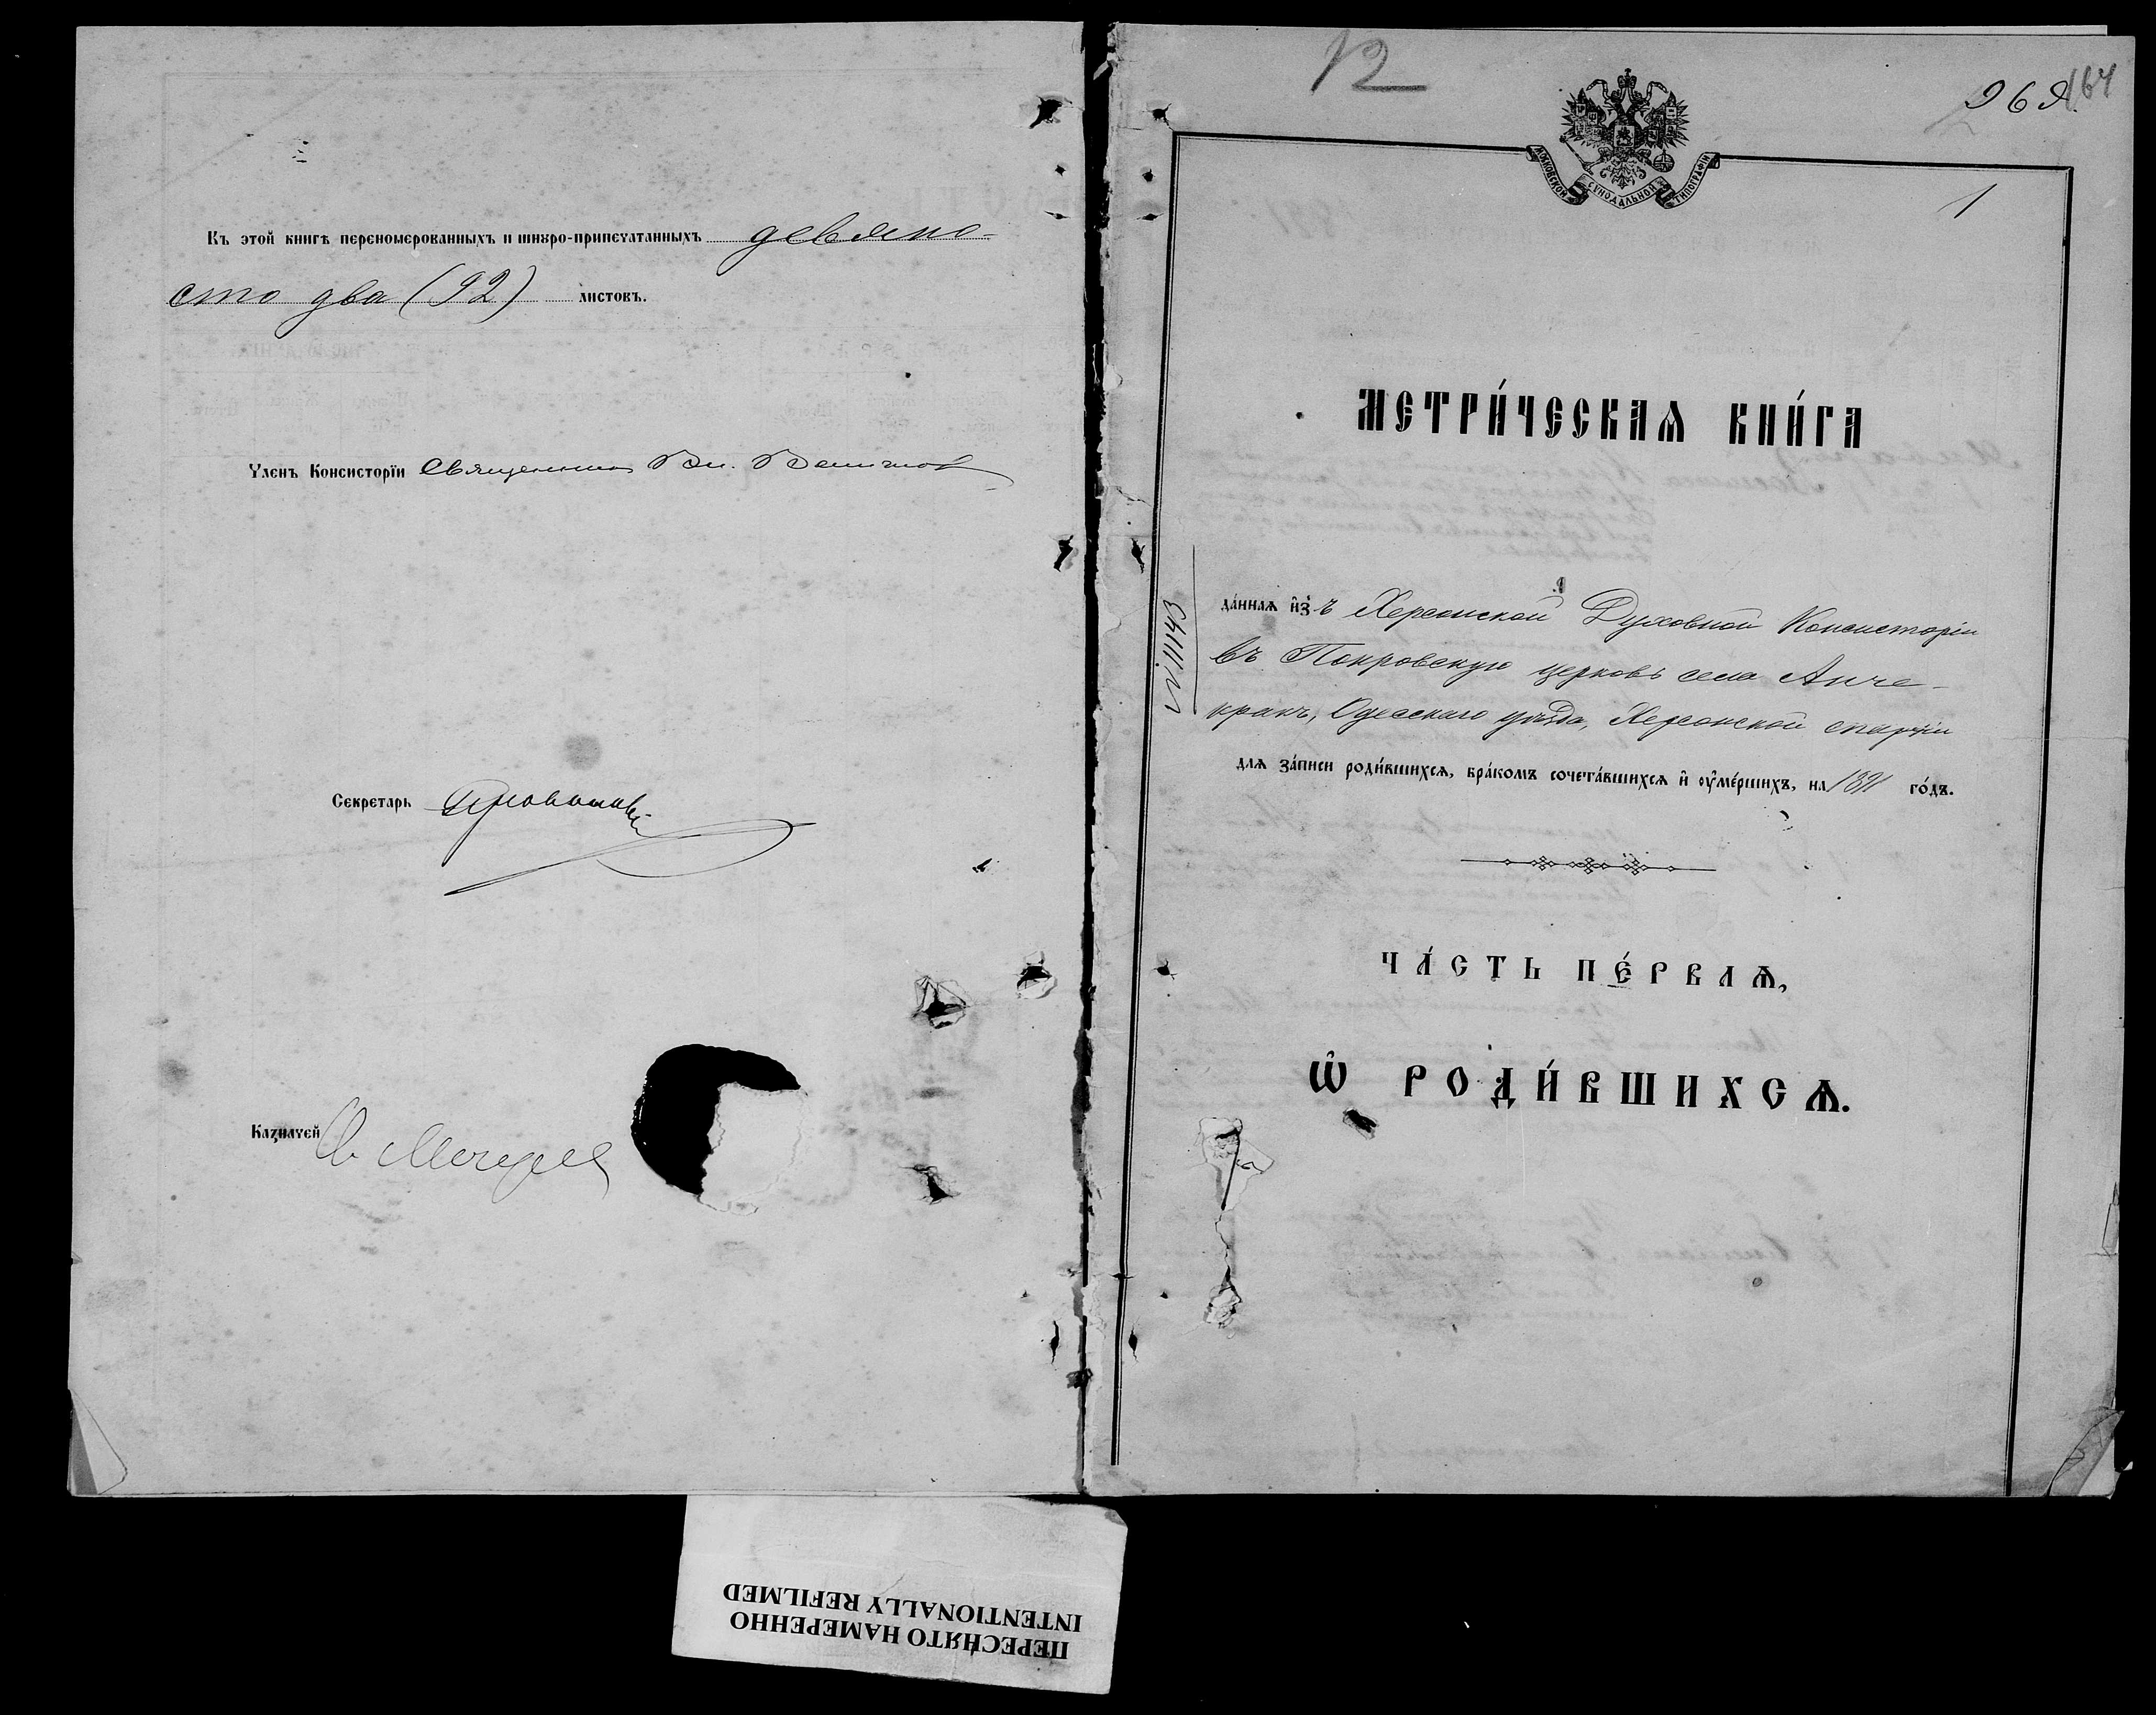 Къ этой книгѣ переномерованныхъ и шнуро-припечатанныхъ девяно-
сто два (92) листовъ.
Членъ Консисторїи Священникъ Вл.
Секретарь
Казначей Св.
12
164
МОСКОВСКОЙ СѴНОДАЛЬНОЙ ТИПОГРАФІИ
1
МЕТРИ́ЧЕСКАѦ КНИ́ГА
№ 11143
да́ннаѧ и҆зъ Херсонской Духовной Консисторіи
въ Покровскую церковь села Анче-
кракъ, Одесскаго уѣзда, Херсонской епархіи
для за́писи роди́вшихсѧ, бра́комъ сочета́вшихсѧ и҆ ᲂу҆ме́ршихъ, на 1891 го́дъ.
ЧА́СТЬ ПЕ́РВАѦ,
Ѡ҆ РОДИ́ВШИХСѦ.
ПЕРЕСНЯТО НАМЕРЕННО
INTENTIONALLY REFILMED